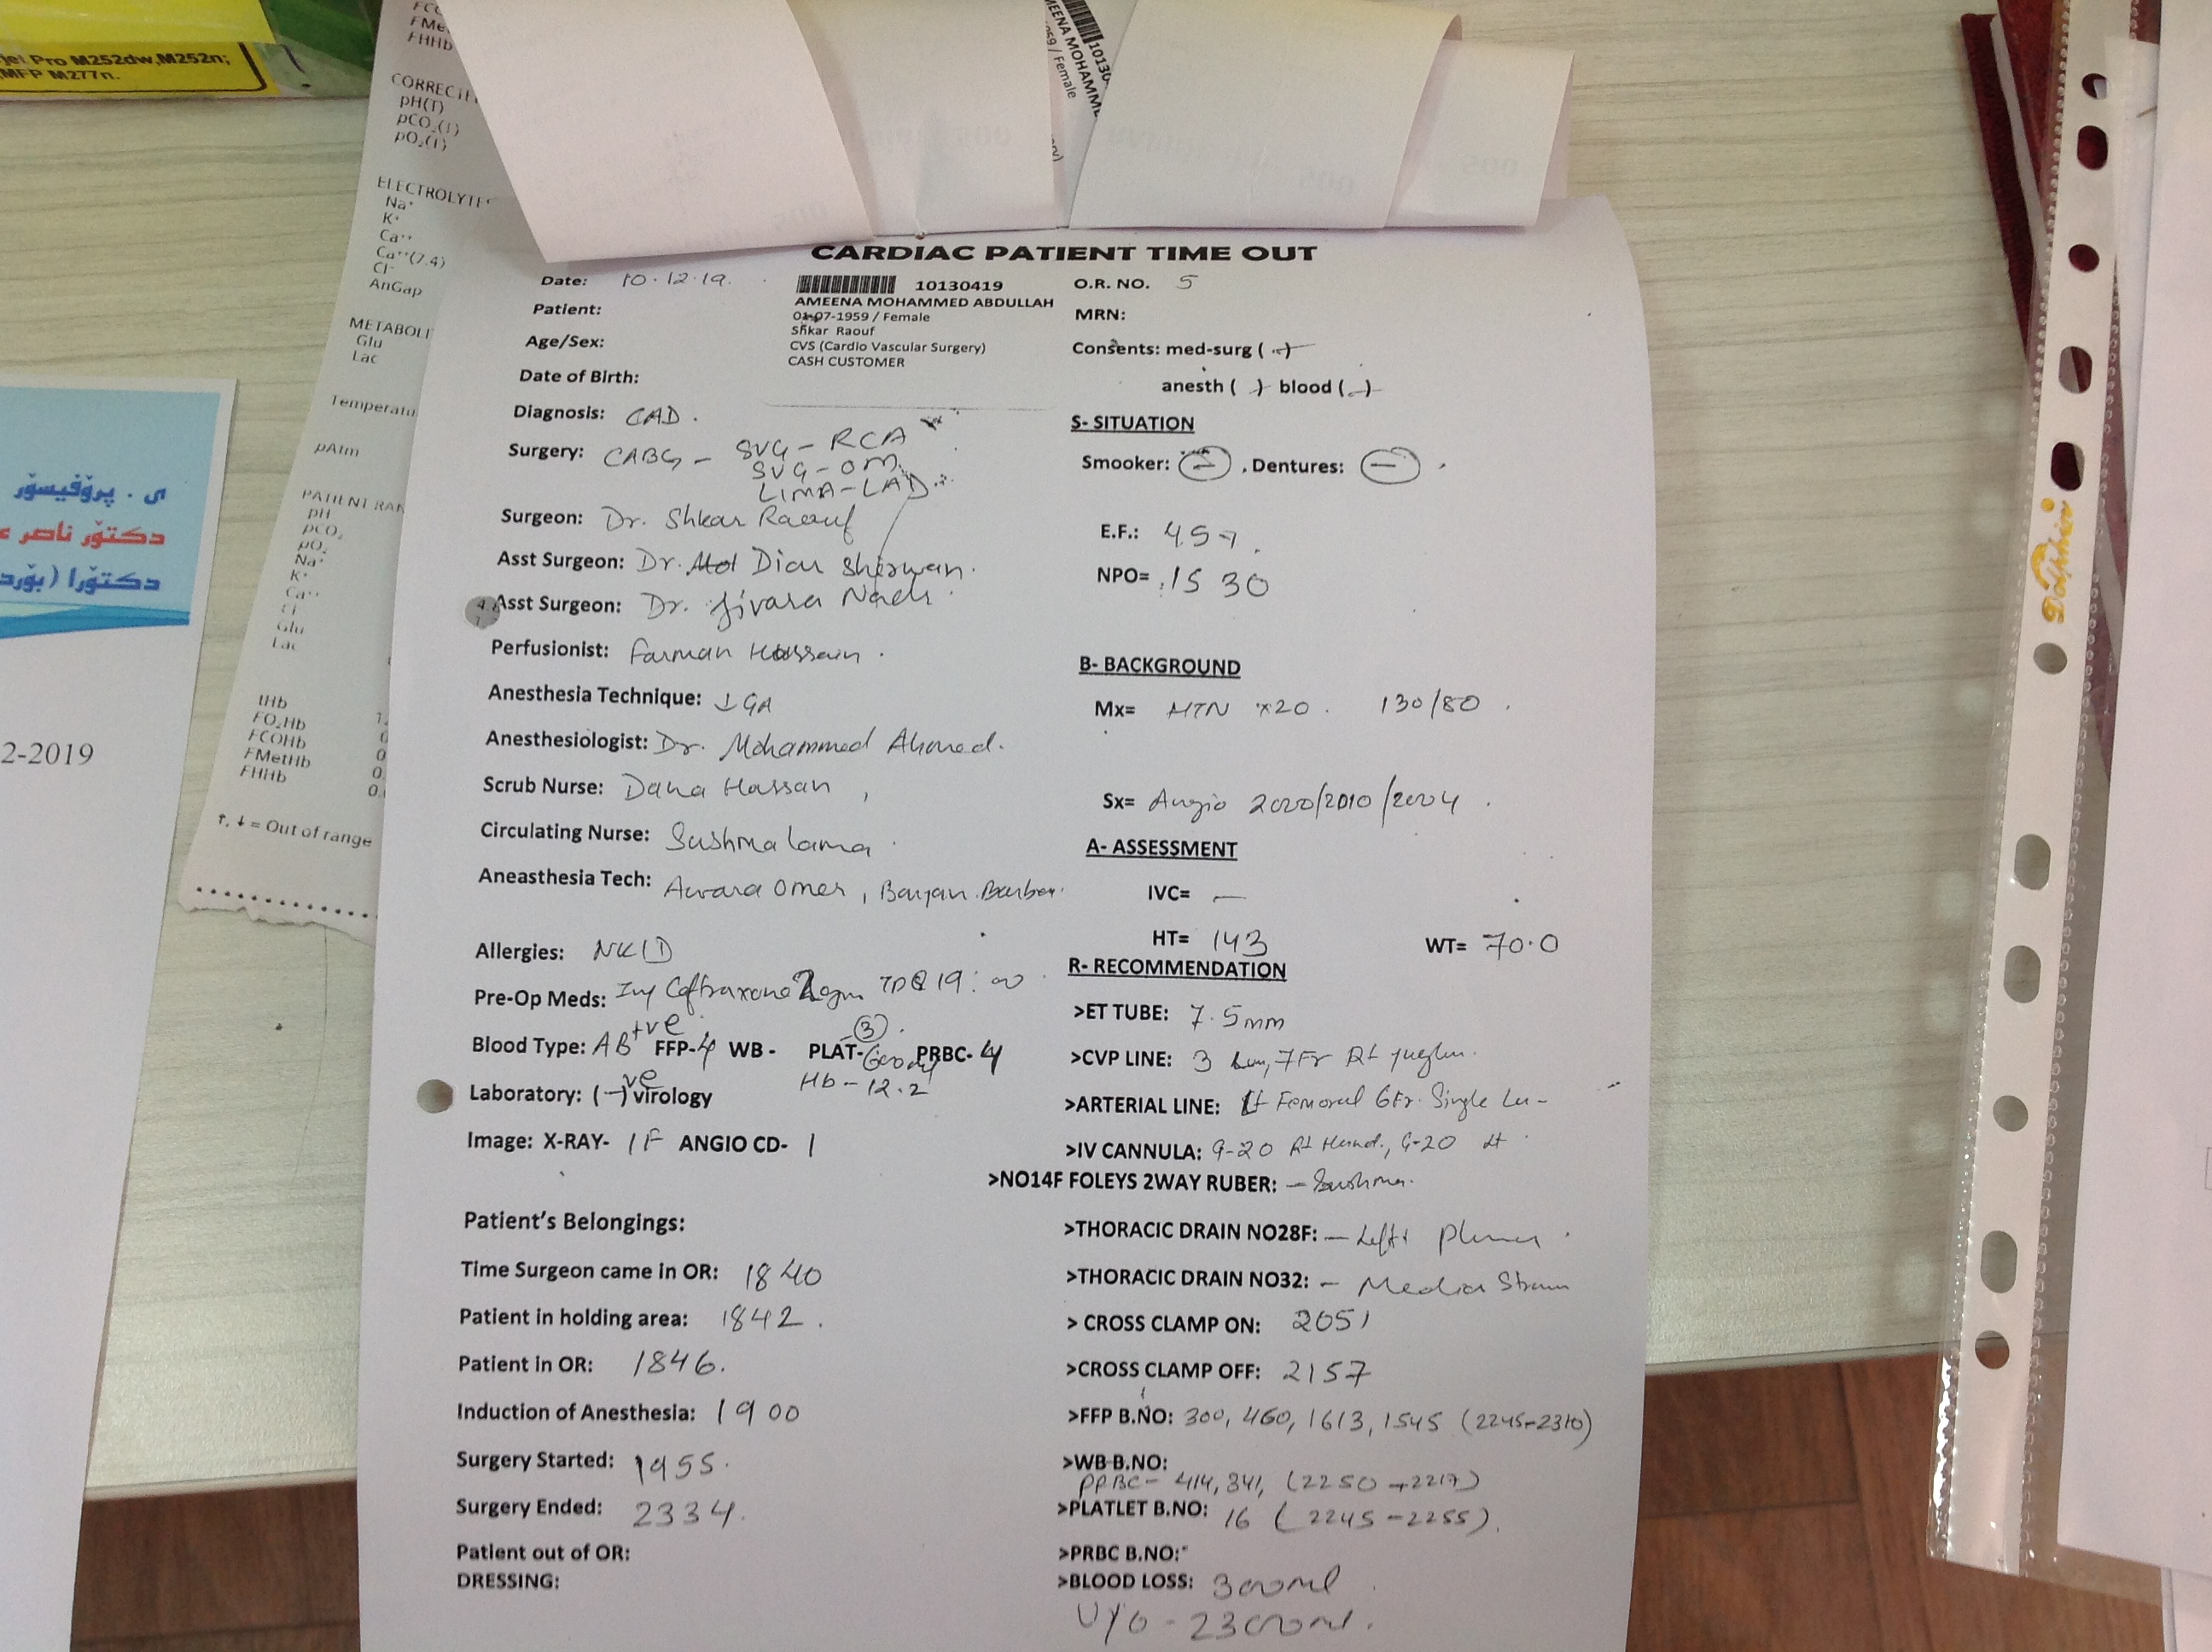 jet Pro M252dw,M252n;
MFP M277n.
FHHb
pH(T)
ELECTROLYTE
Na⁺
K⁺
Ca⁺⁺
Ca⁺⁺(7.4)
Cl⁻
AnGap
METABOLI
Glu
Lac
Temperatu
pAtm
PATIENT RAN
pH
pCO₂
pO₂
Na⁺
K⁺
Ca⁺⁺
Cl⁻
Glu
Lac
tHb
FO₂Hb
FCOHb
FMetHb
FHHb
↑, ↓ = Out of range
ی . پرۆفیسۆر
دکتۆر ناصر
دکتۆرا (بۆرد
2-2019
10130
MEENA MOHAMME
/ Female
CARDIAC PATIENT TIME OUT
Date: 10.12.19.
10130419
AMEENA MOHAMMED ABDULLAH
01-07-1959 / Female
Shkar Raouf
CVS (Cardio Vascular Surgery)
CASH CUSTOMER
Patient:
Age/Sex:
Date of Birth:
Diagnosis: CAD.
Surgery: CABG - SVG - RCA
SVG - OM
LIMA - LAD
Surgeon: Dr. Shkar Raouf
Asst Surgeon: Dr. Diar Sherwan.
Asst Surgeon: Dr.
Perfusionist: Farman Hassain.
Anesthesia Technique: ↓ GA
Anesthesiologist: Dr. Mohammed Ahmed.
Scrub Nurse: Dana Hassan
Circulating Nurse: Sushma Lama
Aneasthesia Tech: Awara Omer, Bayan
Allergies: NKD
Pre-Op Meds: Inj @ 19:00
Blood Type: AB+ve FFP-4 WB - PLAT-③ PRBC-4
Hb - 12.2
Laboratory: (-)ve virology
Image: X-RAY- 1F ANGIO CD- 1
Patient's Belongings:
Time Surgeon came in OR: 1840
Patient in holding area: 1842.
Patient in OR: 1846.
Induction of Anesthesia: 1900
Surgery Started: 1955.
Surgery Ended: 2334.
Patient out of OR:
DRESSING:
O.R. NO. 5
MRN:
Consents: med-surg ( )
anesth ( ) blood ( )
S- SITUATION
Smooker: (-), Dentures: (-).
E.F.: 45
NPO= 1530
B- BACKGROUND
Mx= HTN x20. 130/80.
Sx= Angio 2020/2010/2004.
A- ASSESSMENT
IVC= -
HT= 143 WT= 70.0
R- RECOMMENDATION
>ET TUBE: 7.5mm
>CVP LINE: 3 Lum, 7Fr Rt
>ARTERIAL LINE: Lt Femoral 6Fr. Single Lu-
>IV CANNULA: G-20 Rt Hand, G-20 Lt
>NO14F FOLEYS 2WAY RUBER: - Sushma.
>THORACIC DRAIN NO28F: - Left
>THORACIC DRAIN NO32: -
> CROSS CLAMP ON: 2051
>CROSS CLAMP OFF: 2157
>FFP B.NO: 300, 460, 1613, 1545 (2245-2310)
>WB B.NO:
PRBC - 414, 341, (2250 - 2217)
>PLATLET B.NO: 16 (2245-2255).
>PRBC B.NO:
>BLOOD LOSS: 300ml
U/O - 2300ml.
Dolphin